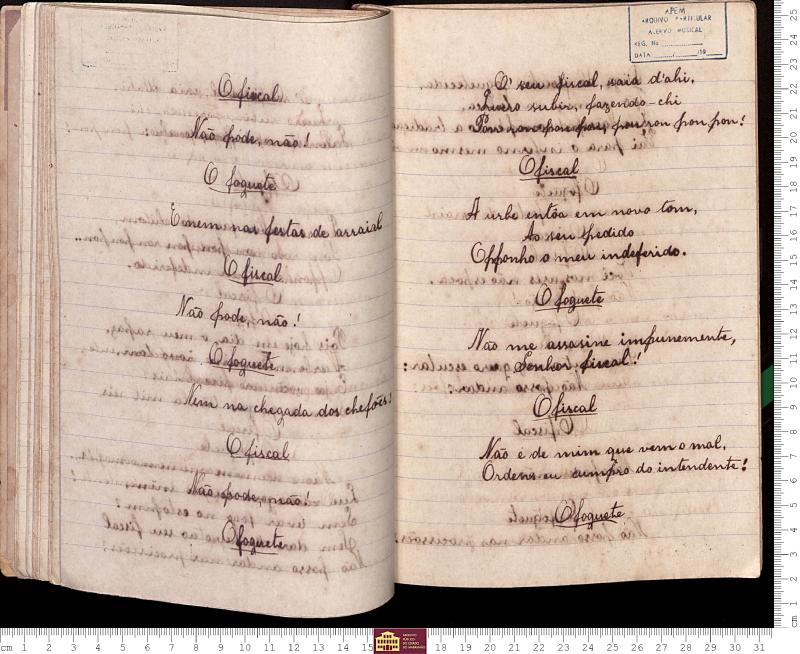 O fiscal
Não pode, não!
O foguete
E nem nas festas de arraial
O fiscal
Não pode, não!
O foguete
Nem na chegada dos chefões!
O fiscal
Não pode, não!
O foguete
APEM
ARQUIVO PARTICULAR
ACERVO MUSICAL
REG. No
DATA / /19
O' seu fiscal, saia d'ahi,
Quero subir, fazendo-chi
pou, pou pou pou!
O fiscal
A urbe entôa em novo tom,
Ao seu pedido
Opponho o meu indeferido.
O foguete
Não me assasine impunemente,
Senhor fiscal!
O fiscal
Não é de mim que vem o mal,
Ordens eu cumpro do intendente!
O foguete
ARQUIVO
PÚBLICO
DO ESTADO
DO MARANHÃO
cm 1 2 3 4 5 6 7 8 9 10 11 12 13 14 15 17 18 19 20 21 22 23 24 25 26 27 28 29 30 31
25
24
23
22
21
20
19
18
17
16
15
14
13
12
11
10
9
8
7
6
5
4
3
2
1
cm